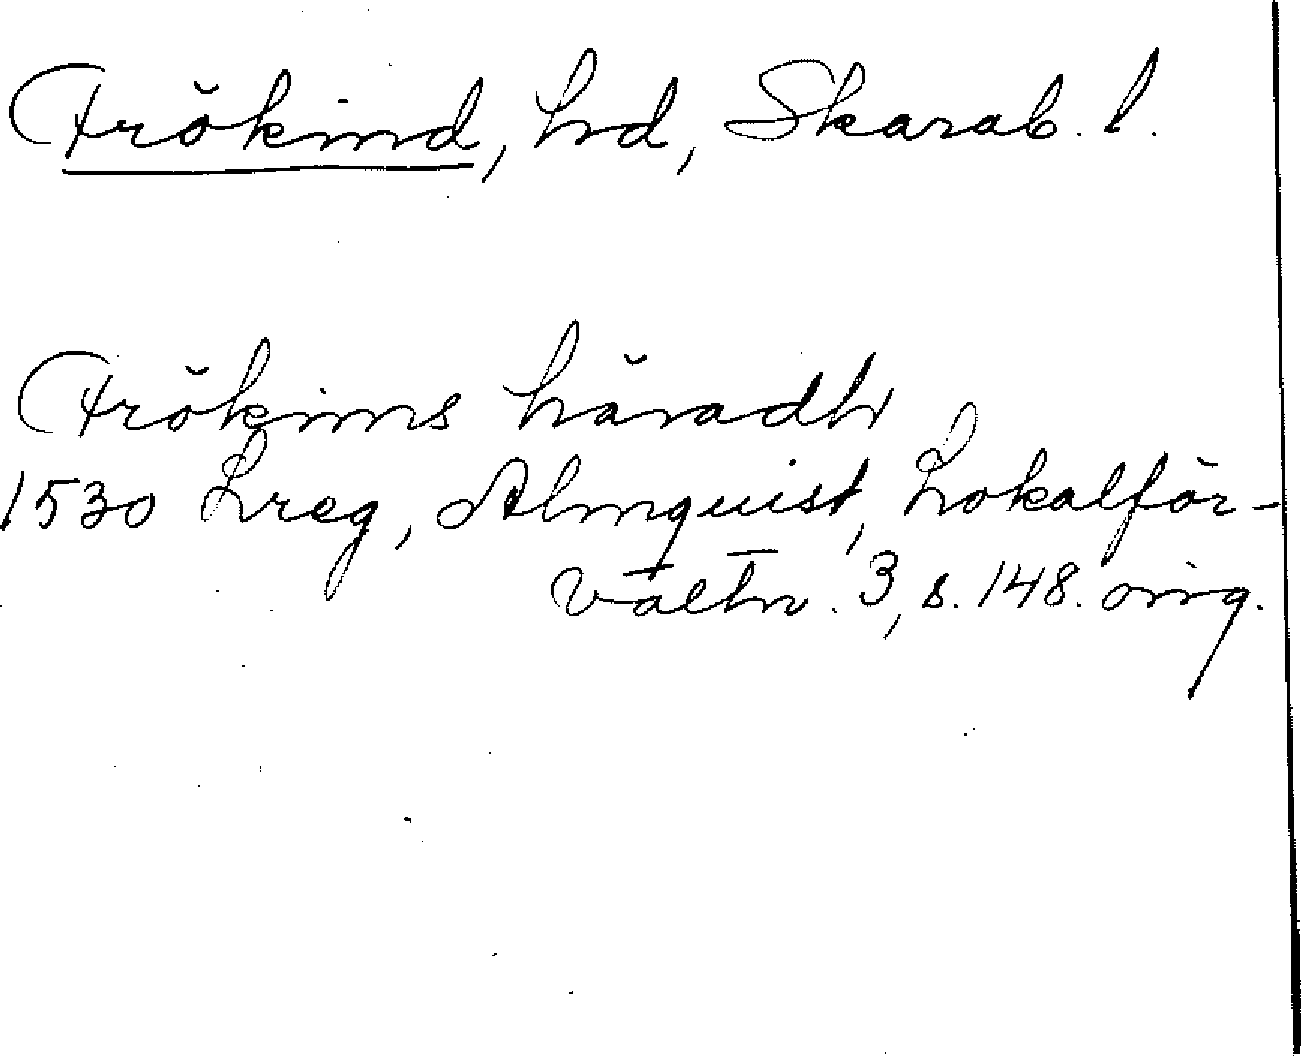 Frökind, hd, Skarab. l.
Frökinns häradh
1530 Lreg, Almquist, Lokalför-
valtn. 3, s. 148. orig.